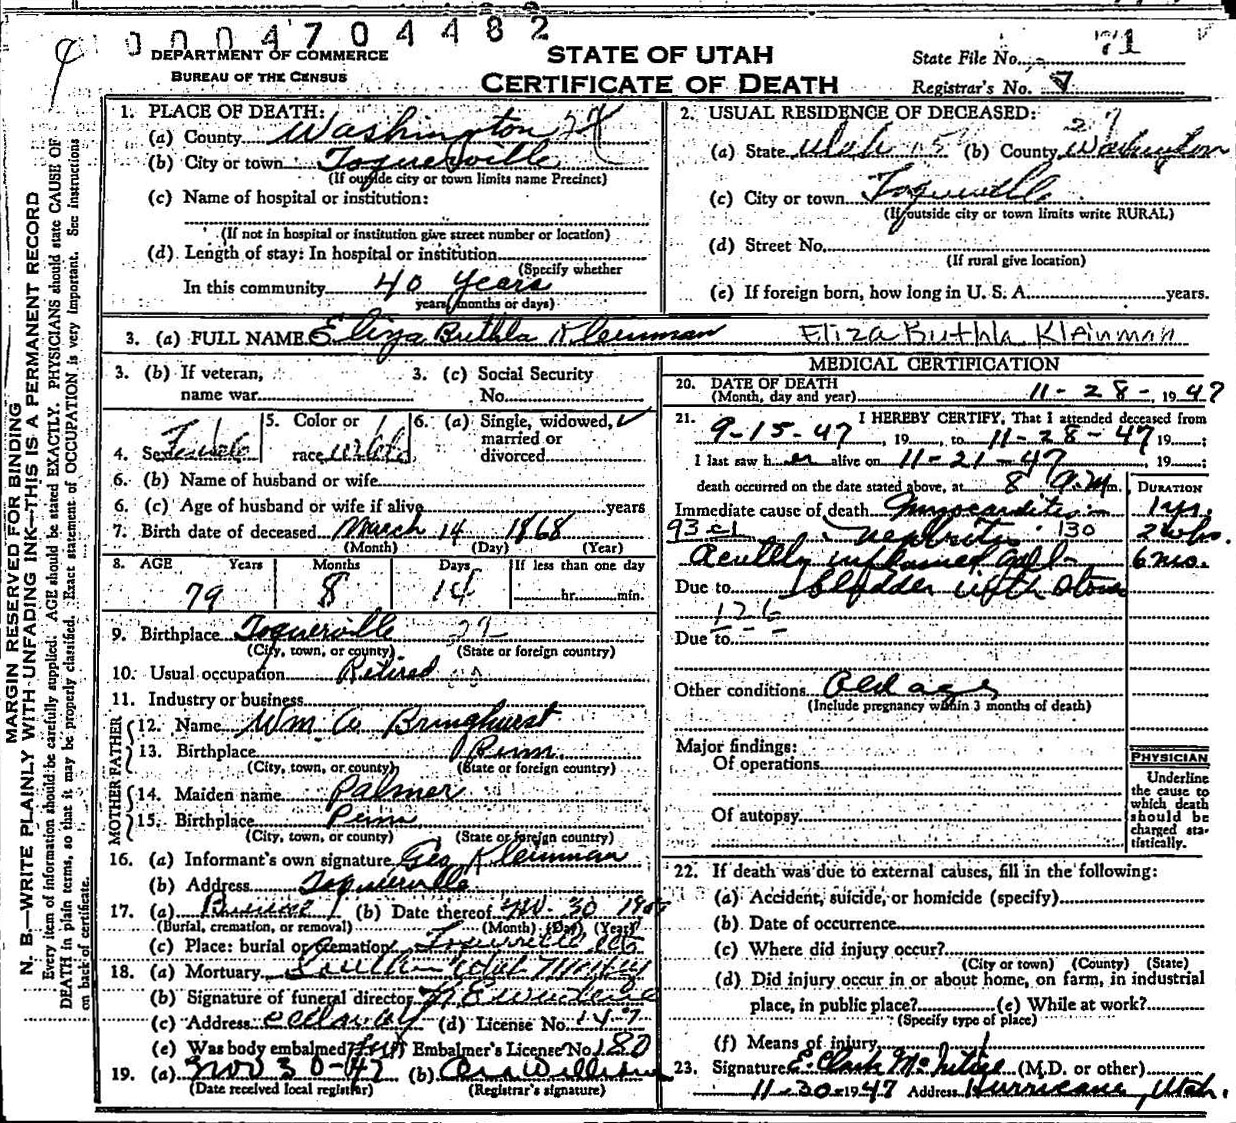 0004704482
DEPARTMENT OF COMMERCE
BUREAU OF THE CENSUS
STATE OF UTAH
CERTIFICATE OF DEATH
State File No. 71
Registrar's No. 7
MARGIN RESERVED FOR BINDING
N. B.—WRITE PLAINLY WITH UNFADING INK—THIS IS A PERMANENT RECORD
Every item of information should be carefully supplied. AGE should be stated EXACTLY. PHYSICIANS should state CAUSE OF
DEATH in plain terms, so that it may be properly classified. Exact statement of OCCUPATION is very important. See instructions
on back of certificate.
1. PLACE OF DEATH:
(a) County Washington 27
(b) City or town Toquerville
(If outside city or town limits name Precinct)
(c) Name of hospital or institution:
(If not in hospital or institution give street number or location)
(d) Length of stay: In hospital or institution
(Specify whether
In this community 40 years
years, months or days)
2. USUAL RESIDENCE OF DECEASED:
(a) State Utah (b) County Washington 27
(c) City or town Toquerville
(If outside city or town limits write RURAL)
(d) Street No.
(If rural give location)
(e) If foreign born, how long in U. S. A. years.
3. (a) FULL NAME Eliza Buthla Kleinman Eliza Buthla Kleinman
3. (b) If veteran,
name war
3. (c) Social Security
No.
4. Sex Female
5. Color or
race White
6. (a) Single, widowed, ✓
married or
divorced
6. (b) Name of husband or wife
6. (c) Age of husband or wife if alive years
7. Birth date of deceased March 14 1868
(Month) (Day) (Year)
8. AGE Years Months Days If less than one day
79 8 14 hr. min.
9. Birthplace Toquerville
(City, town, or county) (State or foreign country)
10. Usual occupation Retired
11. Industry or business
FATHER
12. Name Wm. Bringhurst
13. Birthplace Penn.
(City, town, or county) (State or foreign country)
MOTHER
14. Maiden name Palmer
15. Birthplace Penn
(City, town, or county) (State or foreign country)
16. (a) Informant's own signature Geo Kleinman
(b) Address Toquerville
17. (a) (b) Date thereof Nov. 30
(Burial, cremation, or removal) (Month) (Day) (Year)
(c) Place: burial or cremation Toquerville
18. (a) Mortuary Southern Utah Mortuary
(b) Signature of funeral director
(c) Address Cedar City (d) License No. 147
(e) Was body embalmed? Embalmer's License No. 180
19. (a) Nov 30-47 (b)
(Date received local registrar) (Registrar's signature)
MEDICAL CERTIFICATION
20. DATE OF DEATH
(Month, day and year) 11-28- 1947
21. I HEREBY CERTIFY, That I attended deceased from
9-15-47, 19 , to 11-28-47 19 ;
I last saw her alive on 11-21-47 19 ;
death occurred on the date stated above, at 8 m. DURATION
Immediate cause of death Myocarditis 1 yr.
Nephritis 130 2 wks.
Acutely inflamed gall- 6 mo.
Due to bladder with stones
126
Due to
Other conditions Old age
(Include pregnancy within 3 months of death)
Major findings:
Of operations
Of autopsy
PHYSICIAN
Underline
the cause to
which death
should be
charged sta-
tistically.
22. If death was due to external causes, fill in the following:
(a) Accident, suicide, or homicide (specify)
(b) Date of occurrence
(c) Where did injury occur?
(City or town) (County) (State)
(d) Did injury occur in or about home, on farm, in industrial
place, in public place? (e) While at work?
(Specify type of place)
(f) Means of injury
23. Signature E. Clark McIntire (M.D. or other)
11-30-1947 Address Hurricane, Utah.